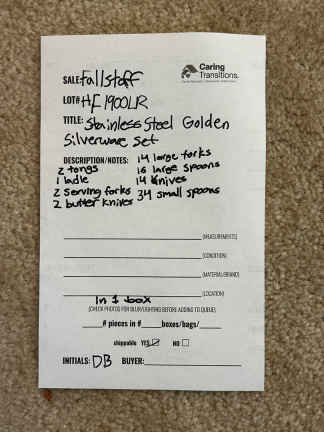 Caring
Transitions.
SALE: Fallstaff
LOT# HF1900LR
TITLE: Stainless Steel Golden
Silverware set
DESCRIPTION/NOTES: 14 large forks
2 tongs 16 large spoons
1 ladle 14 knives
2 serving forks 34 small spoons
2 butter knives
(MEASUREMENTS)
(CONDITION)
(MATERIAL/BRAND)
(LOCATION)
In 1 box
(CHECK PHOTOS FOR BLUR/LIGHTING BEFORE ADDING TO QUEUE)
____# pieces in #____boxes/bags/____
shippable YES ☑ NO ☐
INITIALS: DB BUYER: